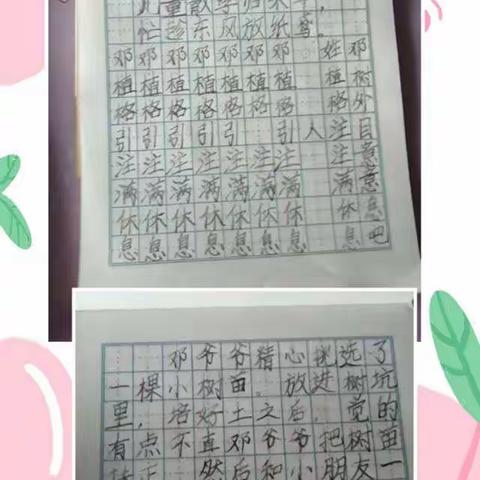 儿童散学归来早，
忙趁东风放纸鸢。
邓邓邓邓邓邓邓 姓邓
植植植植植植植 植树
格格格格格格格 格外
引引引引引 引人注目
注注注注注注注 注意
满满满满满满满 满意
休休休休休休休 休息
息息息息息息息 息吧
邓爷爷精心挑选了
一棵小树苗。放进树坑
里，培好土之后，觉的
有点不直邓爷爷把树苗
扶正。然后和小朋友一